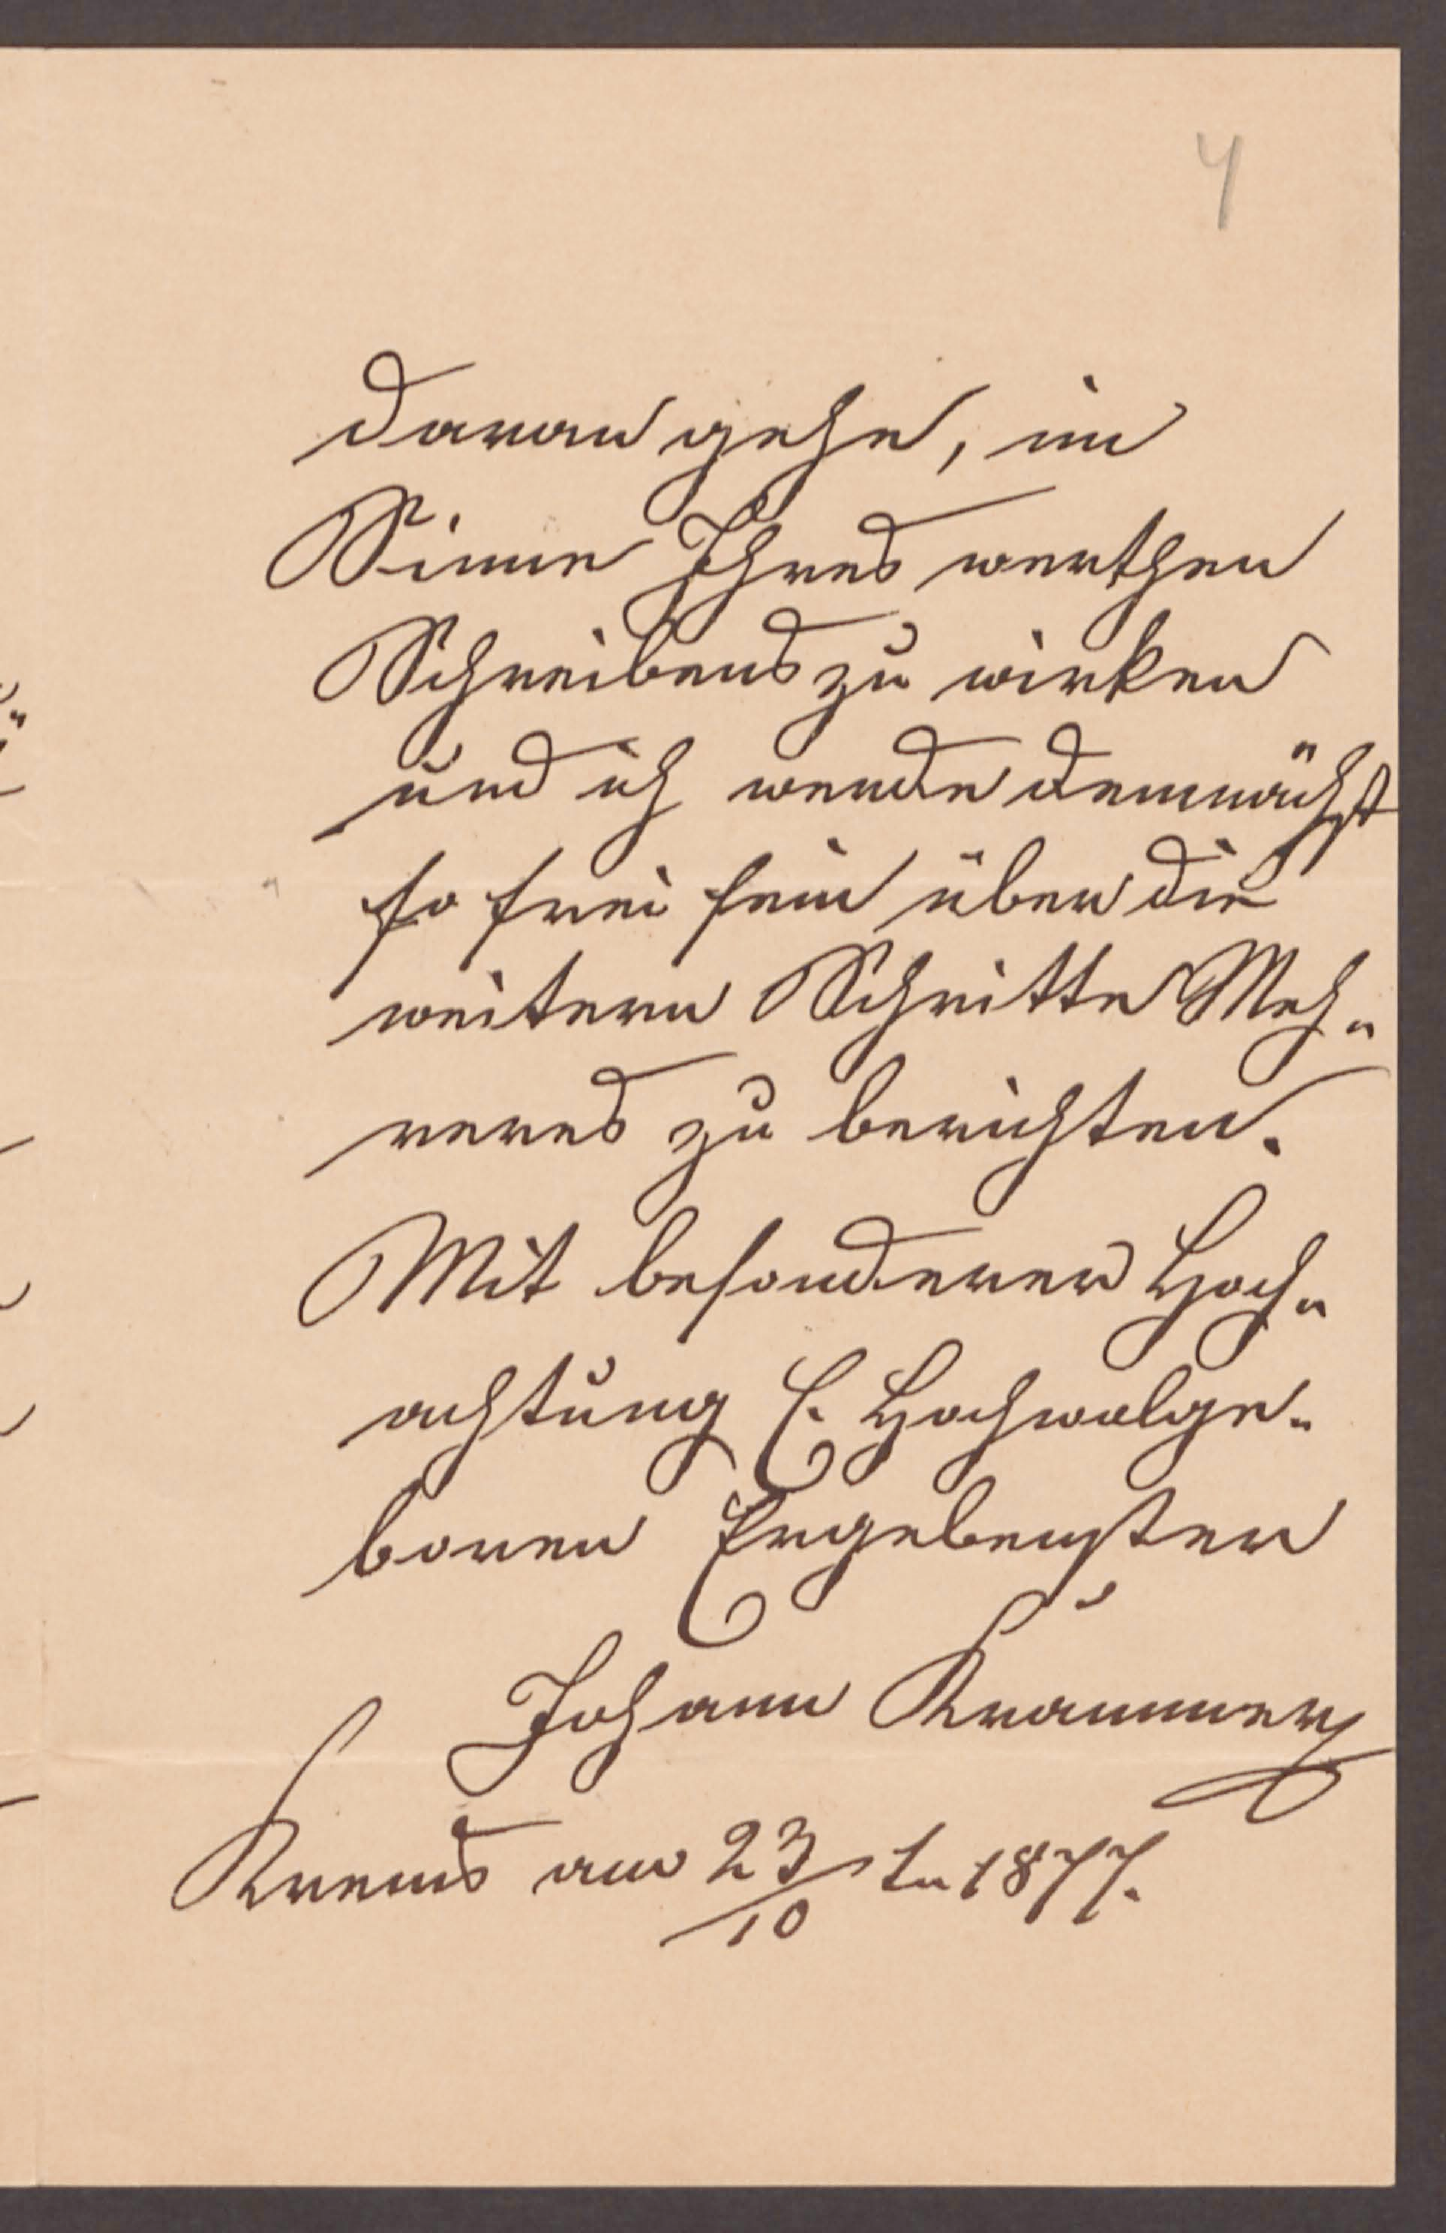 4
daran gehe, im
Sinne Ihres werthen
Schreibens zu wirken
und ich werde demnächst
so frei sein über die
weitern Schritte Meh-
reres zu berichten.
Mit besonderer Hoch-
achtung E. Hochwolge-
boren Ergebenster
Johann Krammer
Krems am 23/10 t. 1877.